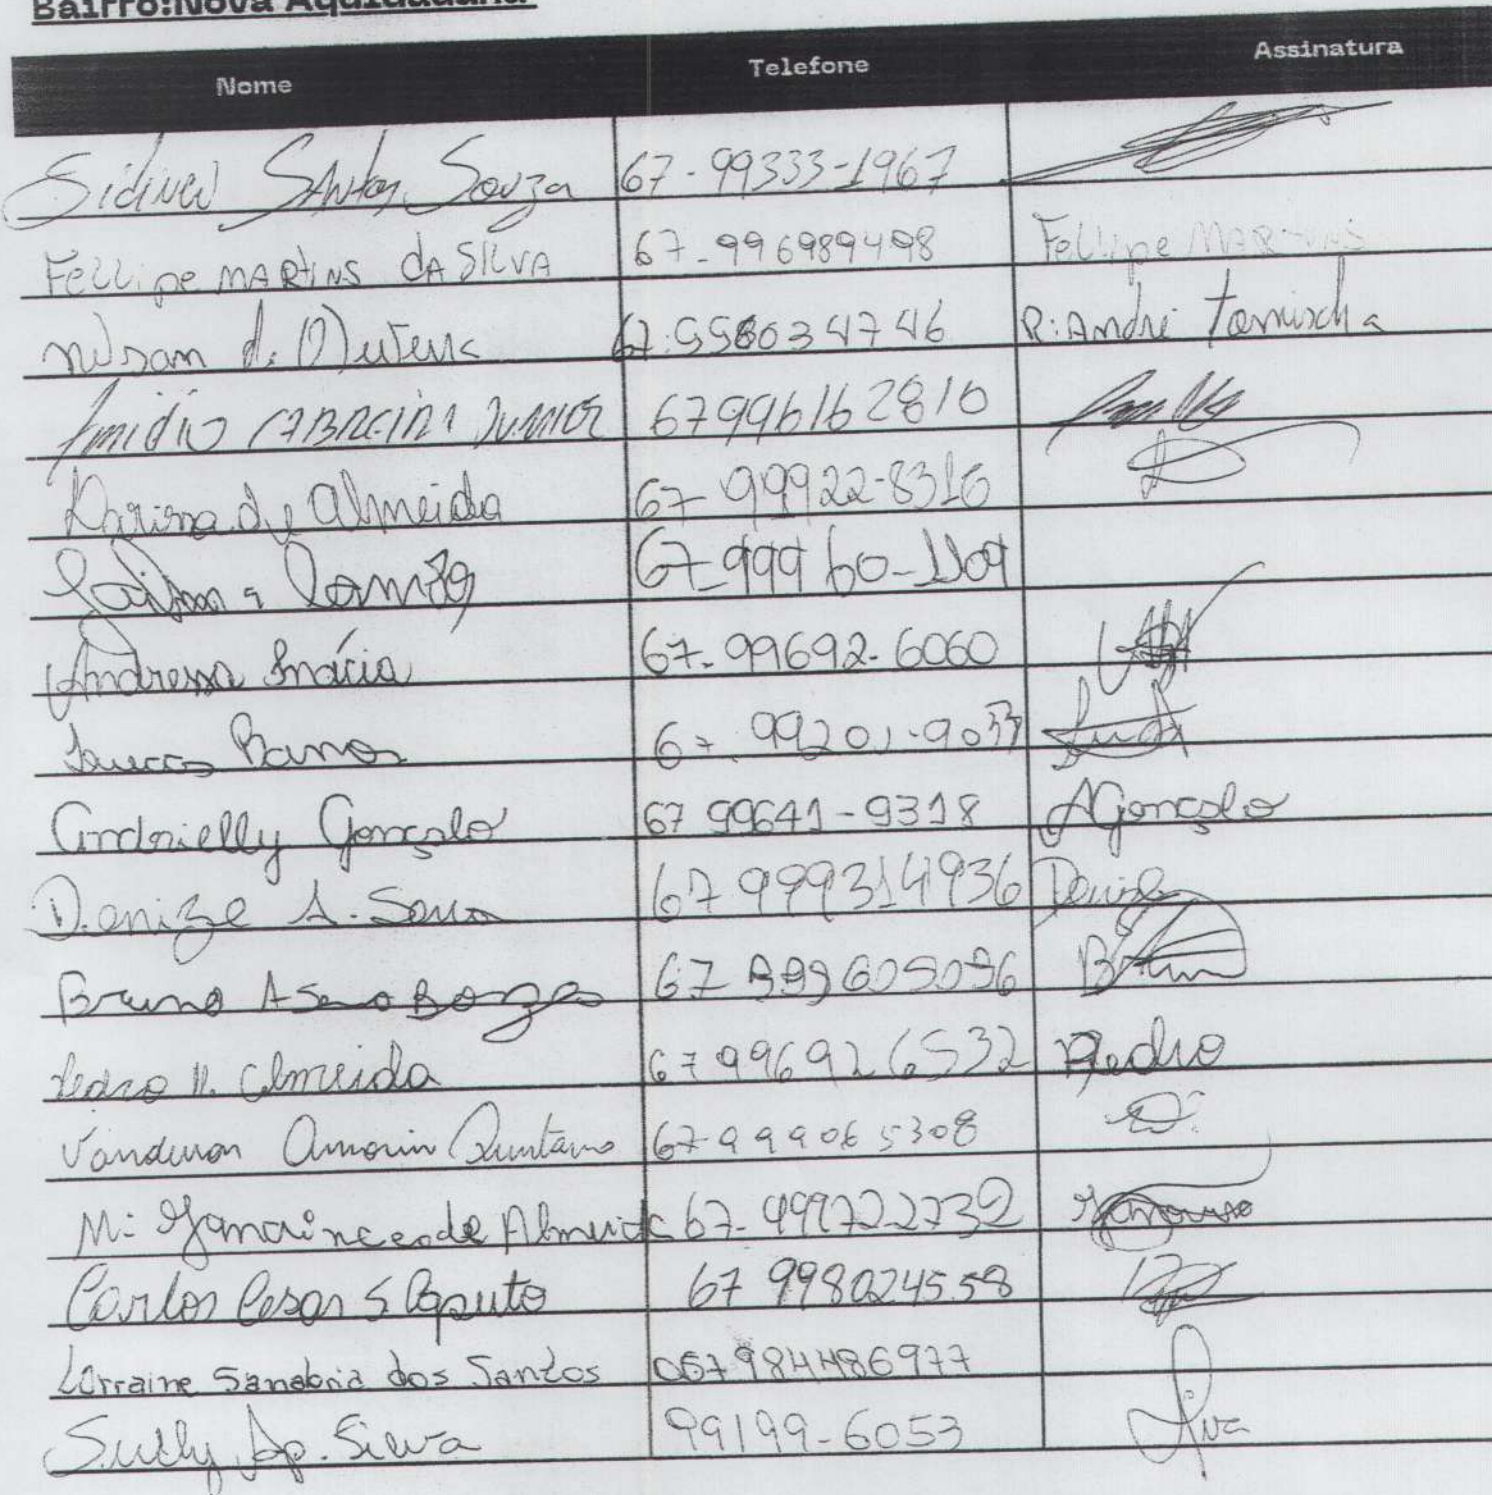 Bairro:Nova Aquidauana
Nome Telefone Assinatura
Sidinei Santos Souza 67-99333-1967
Fellipe Martins da Silva 67-996989498 Fellipe Martins
Nilson d. Oliveira 67:998034746 R:André
Emidio Cabreira Junior 67996162810
Karina de Almeida 67-99922-8316
67-99960-1109
Andressa Inácia 67-99692-6060
Barros 67 99201-9033
Andrielly Gonçalo 67 99641-9318 AGonçalo
Denize A. Sena 67 999314936 Denize
Bruno A Sena Borges 67 999605096 Bruno
Pedro H. Almeida 67 996926532 Pedro
Vanderson Amorin Quintano 67-999065308
M: Janaince de Almeida 67-999722732
Carlos Cesar S Caputo 67 998024558
Lorraine Sanabria dos Santos 067984486977
Suely Ap. Silva 99199-6053